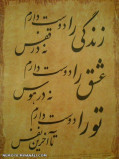 زندگی را دوست دارم
نه در قفس
عشق را دوست دارم
نه در هوس
تو را دوست دارم
تا آخرین نفس